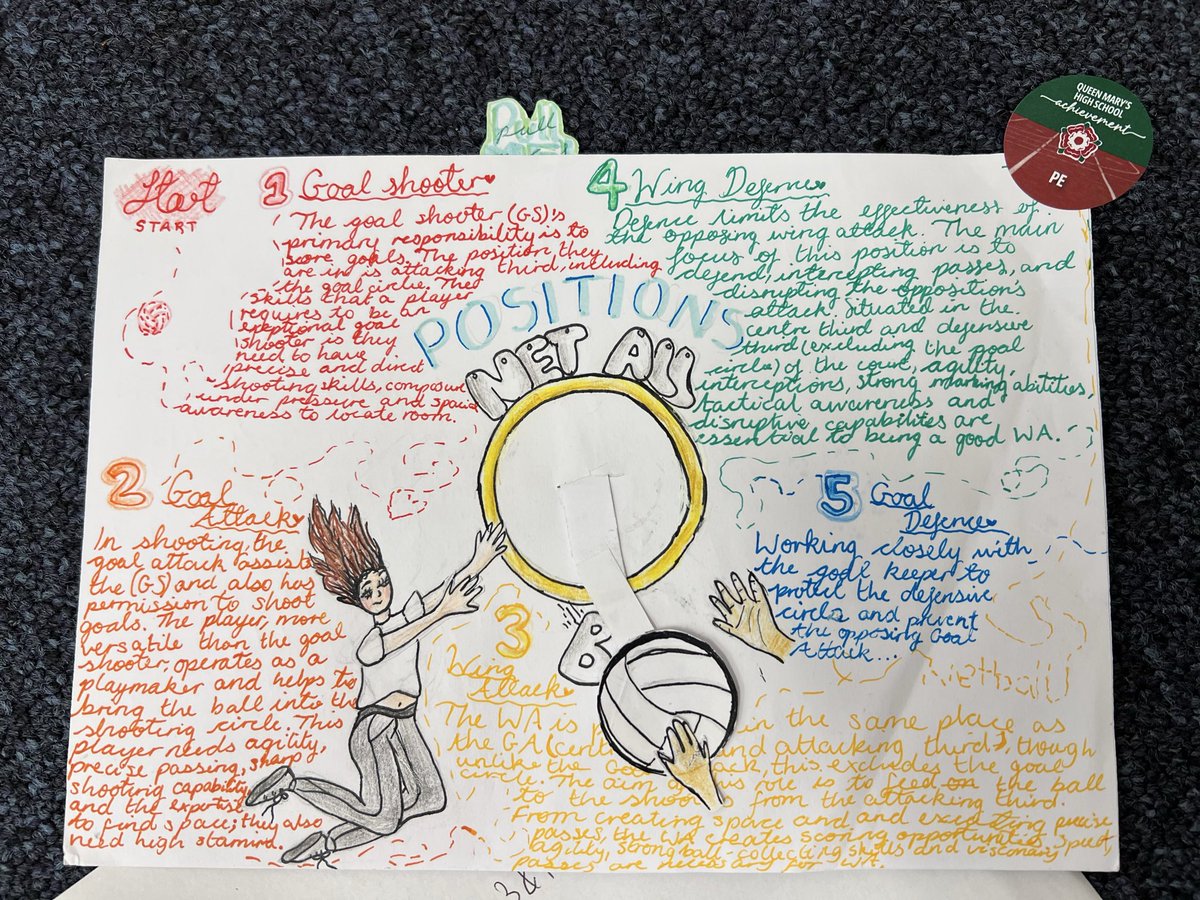 pull
QUEEN MARY'S
HIGH SCHOOL
achievement
PE
Start
START
1 Goal shooter
The goal shooter (GS)'s
primary responsibility is to
score goals. The position they
are in is attacking third, including
the goal circle. The
skills that a player
requires to be an
exeptional goal
shooter is they
need to have
precise and direct
shooting skills, composure
under pressure and spacial
awareness to locate room.
4 Wing Defence
Defence limits the effectiveness of
the opposing wing attack. The main
focus of this position is to
defend, intercepting passes, and
disrupting the opposition's
attack. Situated in the
centre third and defensive
third (excluding the goal
circle) of the court, agility,
interceptions, strong marking abilities,
tactical awareness and
disruptive capabilites are
essential to being a good WA.
POSITIONS
NET ALL
B
2 Goal
Attack
In shooting, the
goal attack assists
the (GS) and also has
permission to shoot
goals. The player, more
versatile than the goal
shooter, operates as a
playmaker and helps to
bring the ball into the
shooting circle. This
player needs agility,
precise passing, sharp
shooting capability
and the expertise
to find space; they also
need high stamina.
5 Goal
Defence
Working closely with
the goal keeper to
protect the defensive
circle and prevent
the opposing Goal
Attack...
Netball
3
Wing
Attack
The WA is in the same place as
the GA (cent and attacking third), though
unlike the Goal ack, this excludes the goal
circle. The aim of this role is to feed on the ball
to the shooters from the attacking third.
From creating space and and executing precise
passes, the WA creates scoring opportunities. Speed,
agility, strong ball collecting skills and visionary
passes are necessary for WA.
3 &